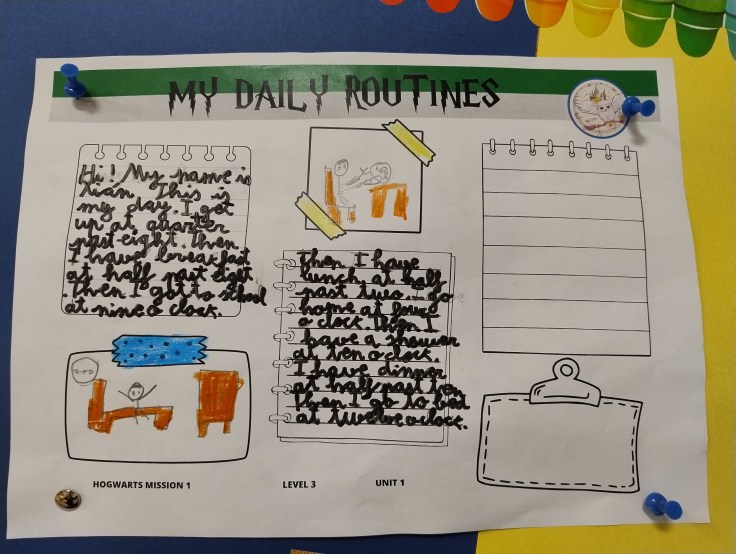 MY DAILY ROUTINES
Hi! My name is
Ivan. This is
my day. I get
up at quarter
past eight. Then
I have breakfast
at half past eight
. Then I got to school
at nine o clock.
Then I have
lunch at half
past two. I go
home at four
o clock. Then I
have a shower
at ten o clock.
I have dinner
at half past ten
Then I go to bed
at twelve o clock.
HOGWARTS MISSION 1
LEVEL 3
UNIT 1